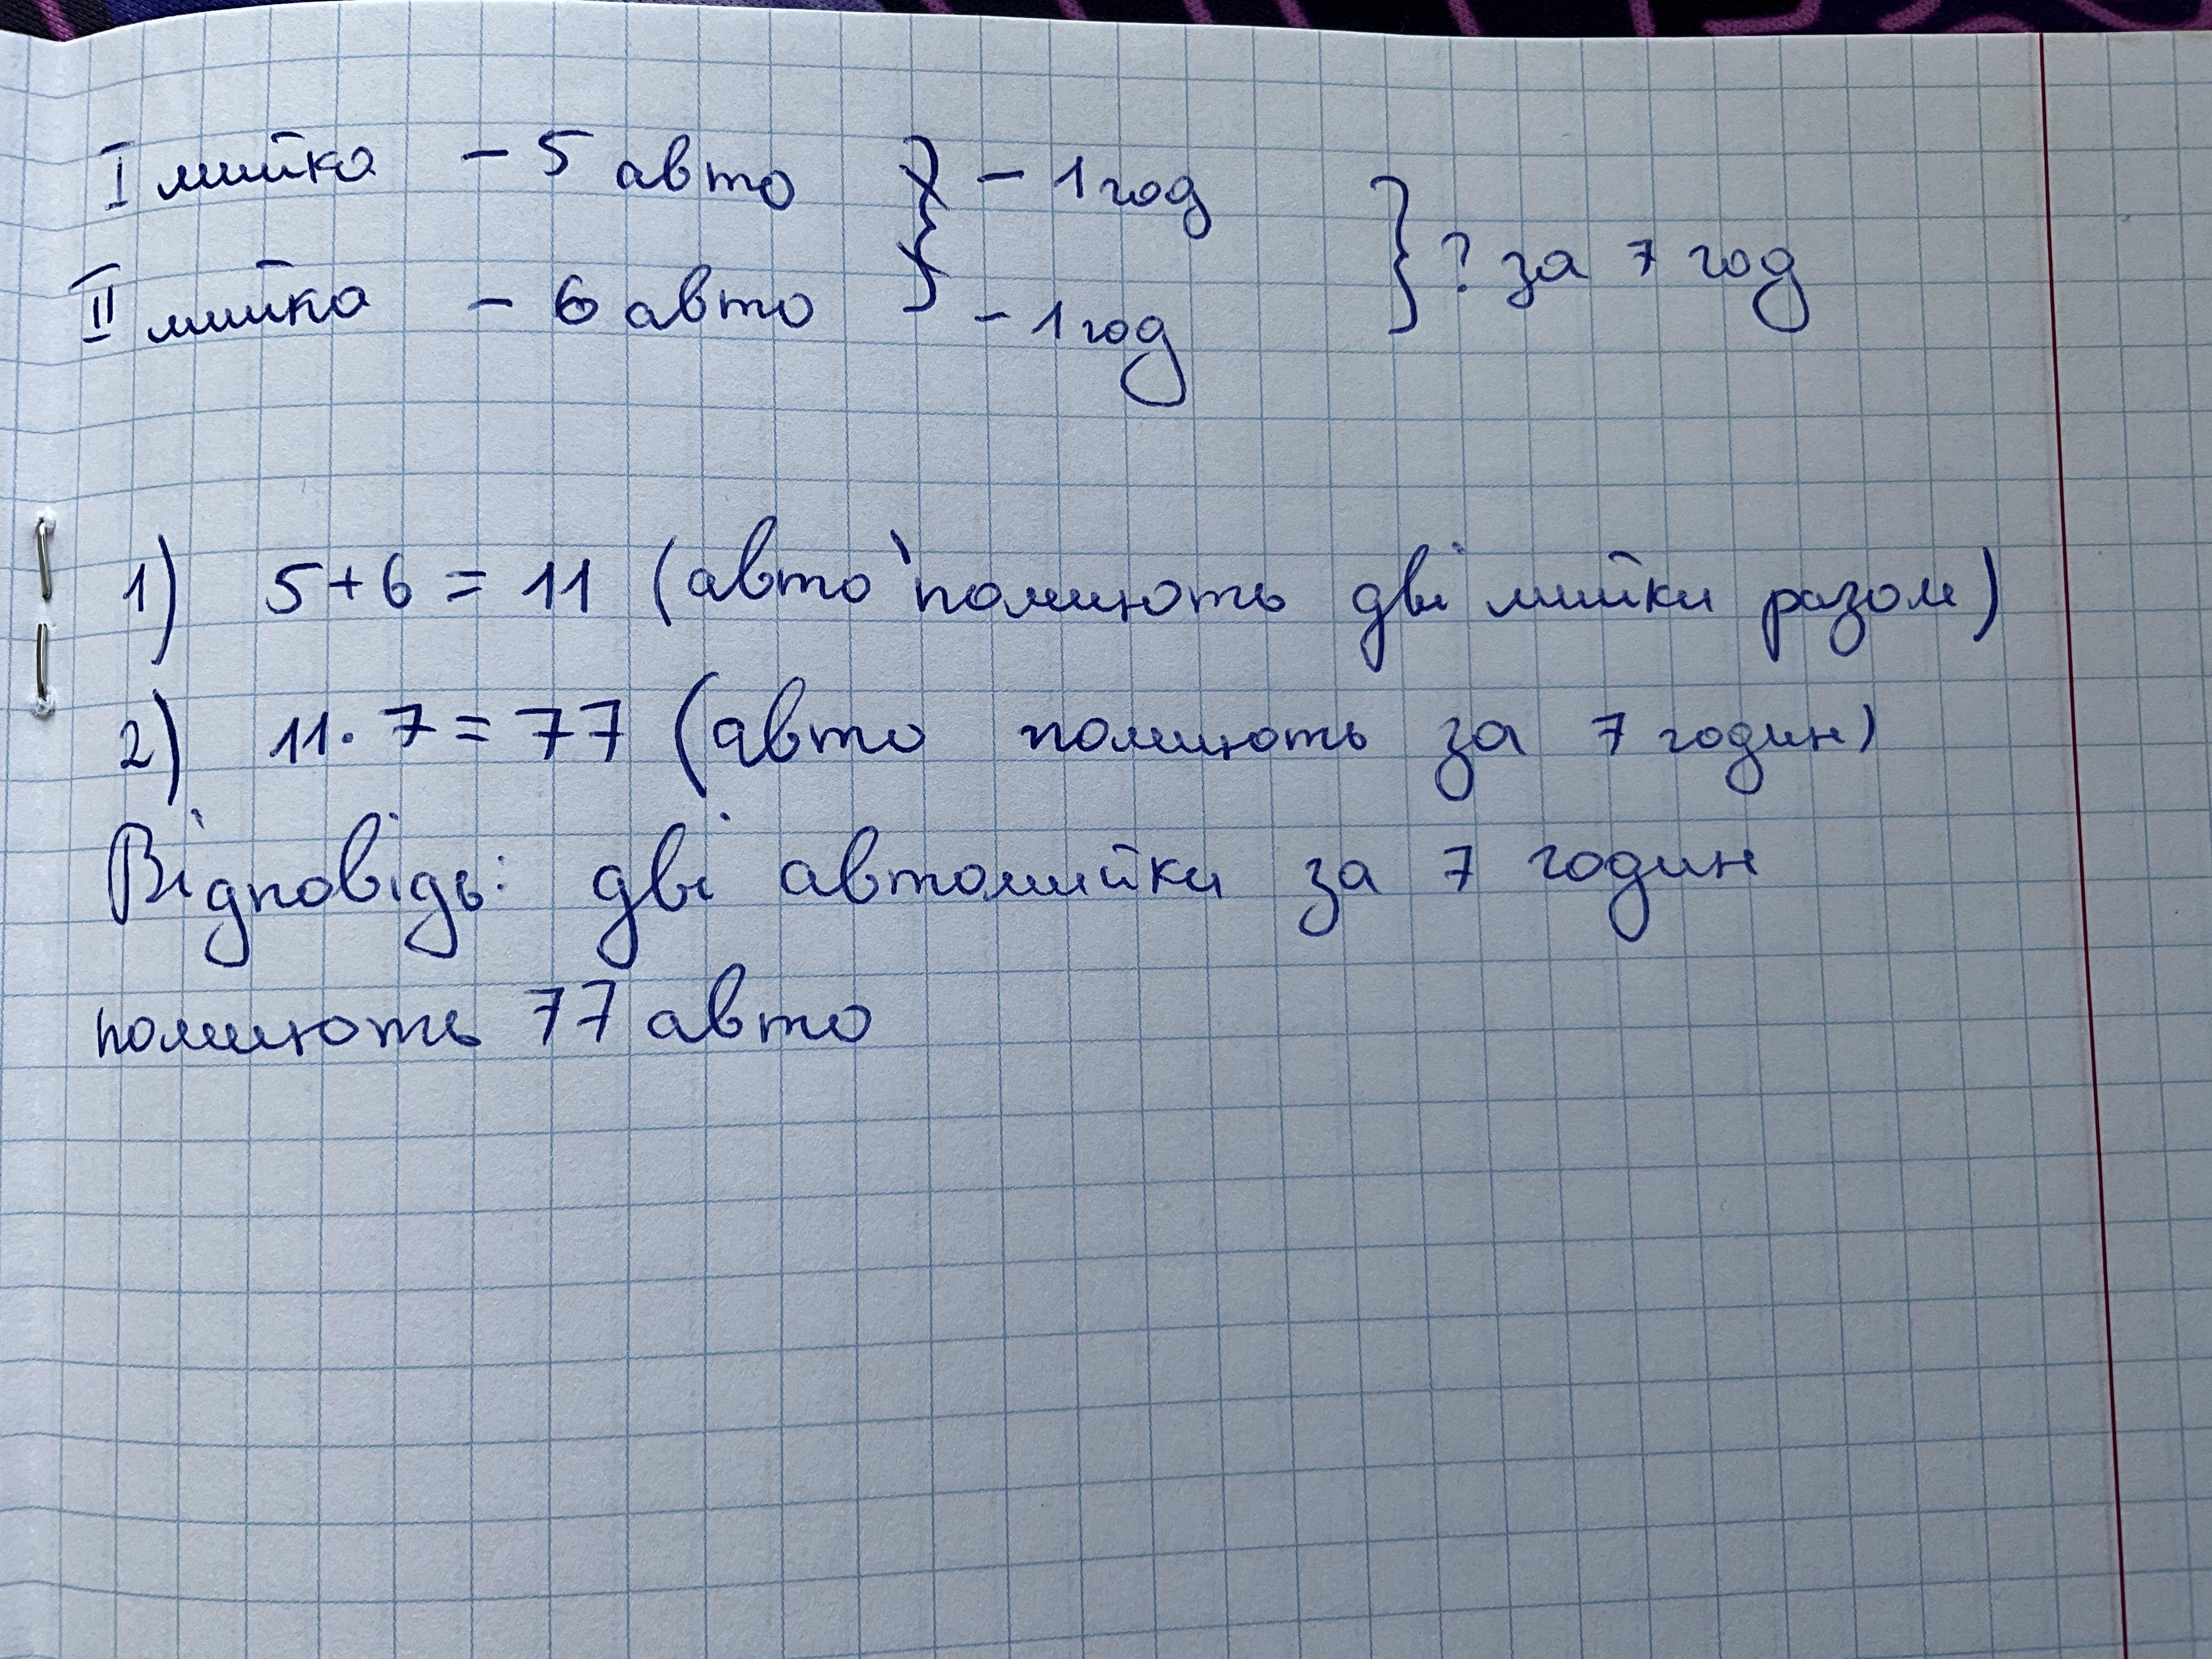 I мийка - 5 авто } - 1 год } ? за 7 год
II мийка - 6 авто - 1 год
1) 5+6 = 11 (авто помиють дві мийки разом)
2) 11 · 7 = 77 (авто помиють за 7 годин)
Відповідь: дві автомийки за 7 годин
помиють 77 авто